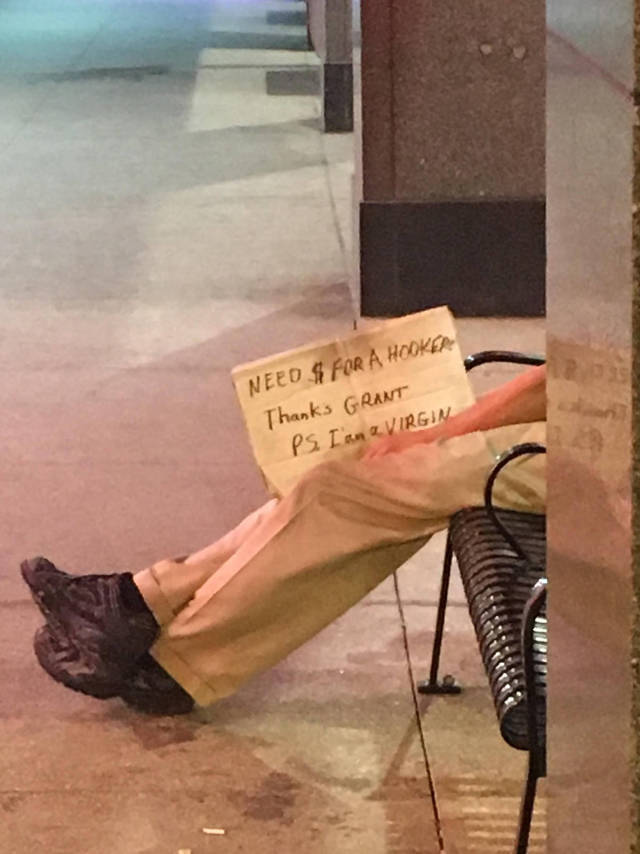 NEED $ FOR A HOOKER
Thanks GRANT
PS. I'am a VIRGIN